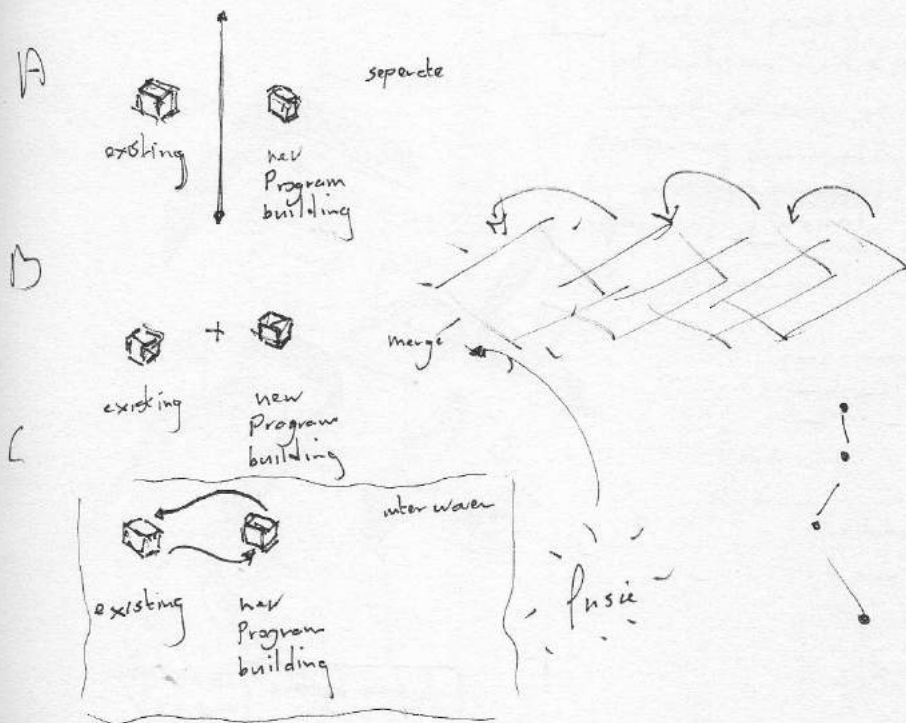 A
seperate
existing
new
Program
building
B
+
merge
existing
new
Program
building
C
interwoven
existing
new
Program
building
fusie